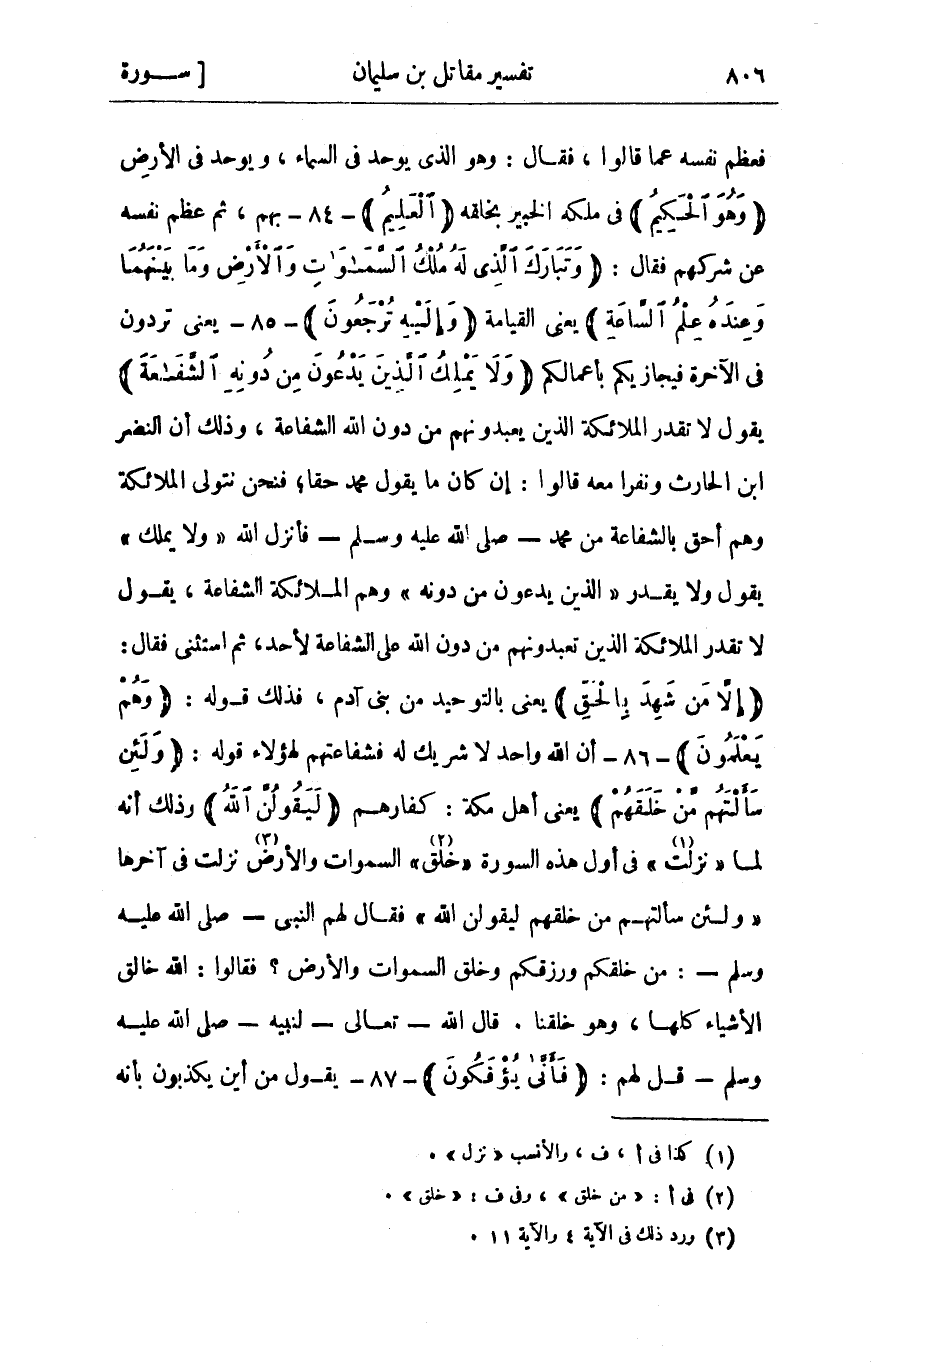 ٨٠٦ تفسير مقاتل بن سليمان [ سورة
فعظم نفسه عما قالوا ، فقال : وهو الذى يوحد فى السماء ، ويوحد فى الأرض
( وَهُوَ ٱلْحَكِيمُ ) فى ملكه الخبير بخلقه ( ٱلْعَلِيمُ ) - ٨٤ - بهم ، ثم عظم نفسه
عن شركهم فقال : ( وَتَبَارَكَ ٱلَّذِى لَهُ مُلْكُ ٱلسَّمَـٰوَٰتِ وَٱلْأَرْضِ وَمَا بَيْنَهُمَا
وَعِندَهُ عِلْمُ ٱلسَّاعَةِ ) يعنى القيامة ( وَإِلَيْهِ تُرْجَعُونَ ) - ٨٥ - يعنى تردون
فى الآخرة فيجازيكم بأعمالكم ( وَلَا يَمْلِكُ ٱلَّذِينَ يَدْعُونَ مِن دُونِهِ ٱلشَّفَـٰعَةَ )
يقول لا تقدر الملائكة الذين يعبدونهم من دون الله الشفاعة ، وذلك أن النضر
ابن الحارث ونفرا معه قالوا : إن كان ما يقول محمد حقا، فنحن نتولى الملائكة
وهم أحق بالشفاعة من محمد — صلى الله عليه وسلم — فأنزل الله « ولا يملك »
يقول ولا يقدر « الذين يدعون من دونه » وهم الملائكة الشفاعة ، يقول
لا تقدر الملائكة الذين تعبدونهم من دون الله على الشفاعة لأحد، ثم استثنى فقال :
( إِلَّا مَن شَهِدَ بِٱلْحَقِّ ) يعنى بالتوحيد من بنى آدم ، فذلك قوله : ( وَهُمْ
يَعْلَمُونَ ) - ٨٦ - أن الله واحد لا شريك له فشفاعتهم لهؤلاء قوله : ( وَلَئِن
سَأَلْتَهُم مَّنْ خَلَقَهُمْ ) يعنى أهل مكة : كفارهم ( لَيَقُولُنَّ ٱللَّهُ ) وذلك أنه
لما « نزلت (١) » فى أول هذه السورة «خلق (٢)» السموات والأرض (٣) نزلت فى آخرها
« ولئن سألتهم من خلقهم ليقولن الله » فقال لهم النبى — صلى الله عليه
وسلم — : من خلقكم ورزقكم وخلق السموات والأرض ؟ فقالوا : الله خالق
الأشياء كلها ، وهو خلقنا . قال الله — تعالى — لنبيه — صلى الله عليه
وسلم — قل لهم : ( فَأَنَّىٰ يُؤْفَكُونَ ) - ٨٧ - يقول من أين يكذبون بأنه
(١) كذا فى أ ، ف ، والأنسب « نزل » .
(٢) فى أ : « من خلق » ، وفى ف : « خلق » .
(٣) ورد ذلك فى الآية ٤ والآية ١١ .